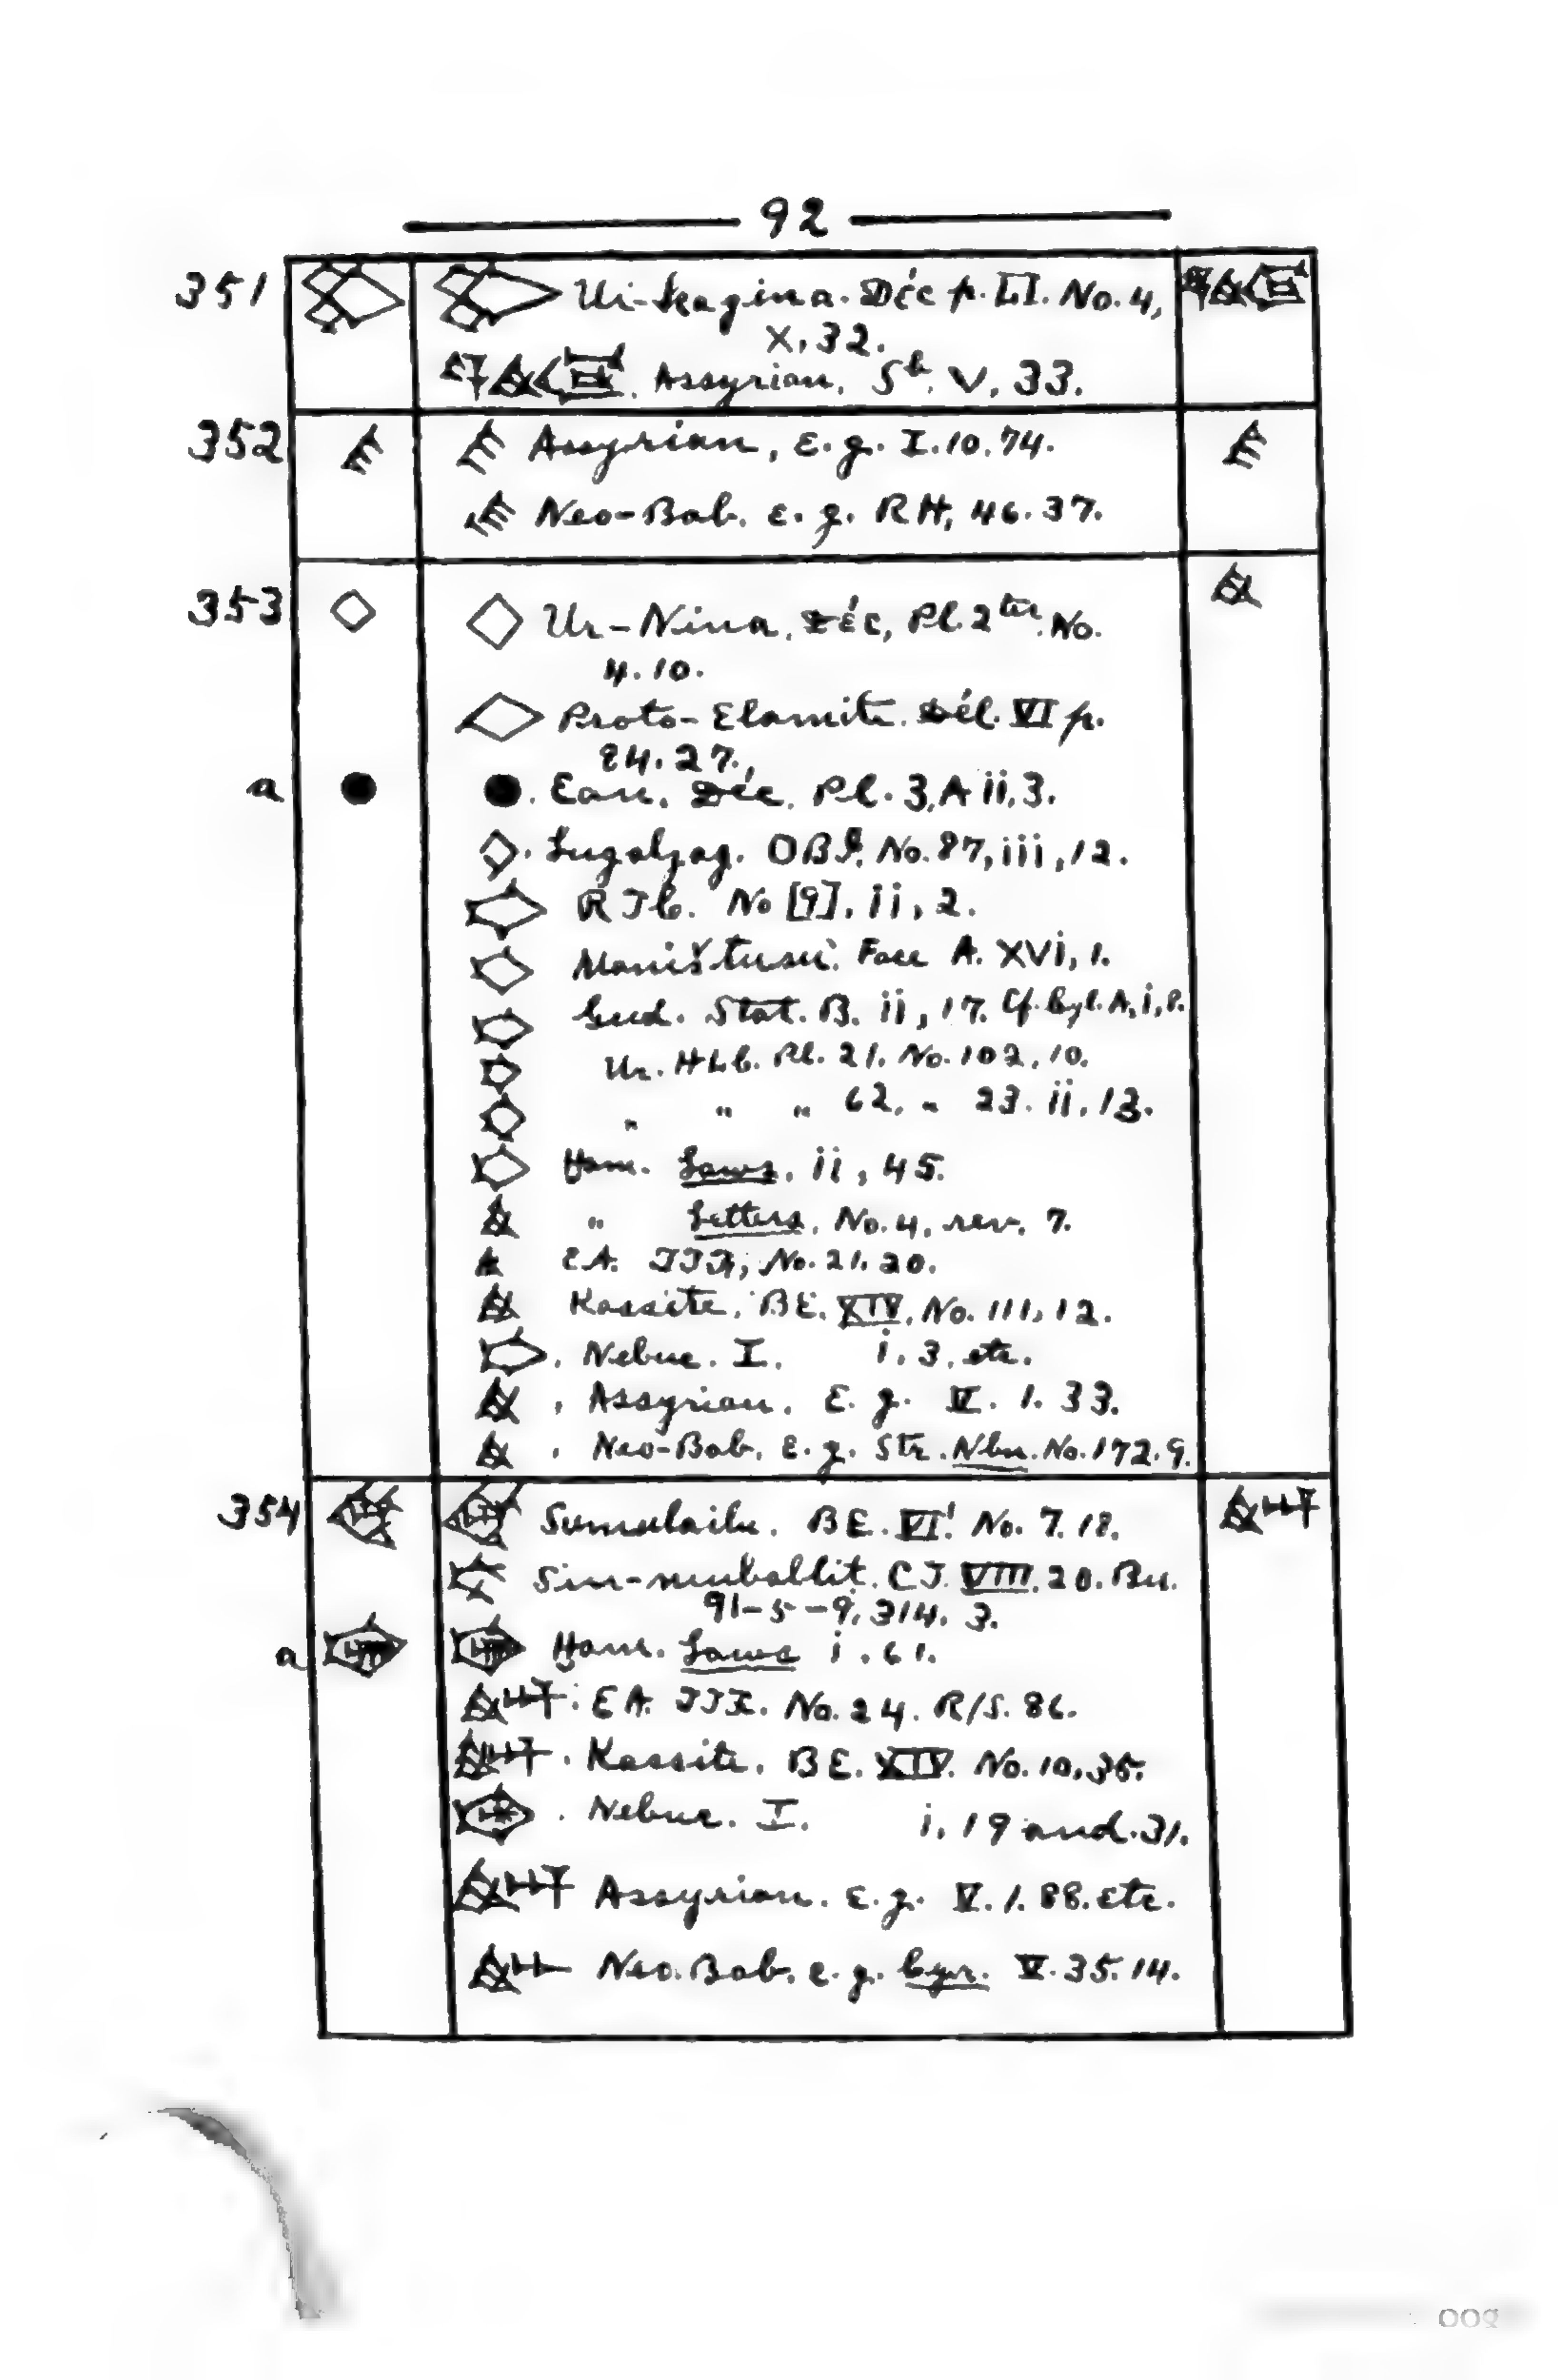 92
351 Uru-kagina. Déc p. LI. No. 4,
X, 32.
Assyrian, Sb. V, 33.
352 Assyrian, E.g. I. 10. 74.
Neo-Bab. e.g. RH, 46. 37.
353 Ur-Nina. Déc, Pl. 2ter. No.
4. 10.
Proto-Elamite. Dél. VI p.
84. 27.,
a Ean. Déc. Pl. 3, A ii, 3.
Lugalzag. OBI. No. 87, iii, 12.
RTC. No [9], ii, 2.
Maništusu. Face A. XVI, 1.
Gud. Stat. B. ii, 17. Cf. Cyl. A, i, 8.
Ur. HLC. Pl. 21. No. 102, 10.
" " " 62, " 23. ii, 13.
Ham. Laws. ii, 45.
" Letters, No. 4, rev. 7.
EA. No. 21. 20.
Kassite. BE. XIV, No. 111, 12.
Nebuc. I. i. 3. etc.
Assyrian. E.g. V. 1. 33.
Neo-Bab. E.g. Str. Nbn. No. 172. 9.
354 Sumulailu. BE. VI1 No. 7. 18.
Sin-muballit. CT. VIII. 20. Bu.
91-5-9, 314. 3.
a Ham. Laws i. 61.
EA. No. 24. R/S. 86.
Kassite. BE. XIV. No. 10, 35.
Nebuc. I. i, 19 and 31.
Assyrian. E.g. V. 1. 88. etc.
Neo. Bab. e.g. Cyr. V. 35. 14.